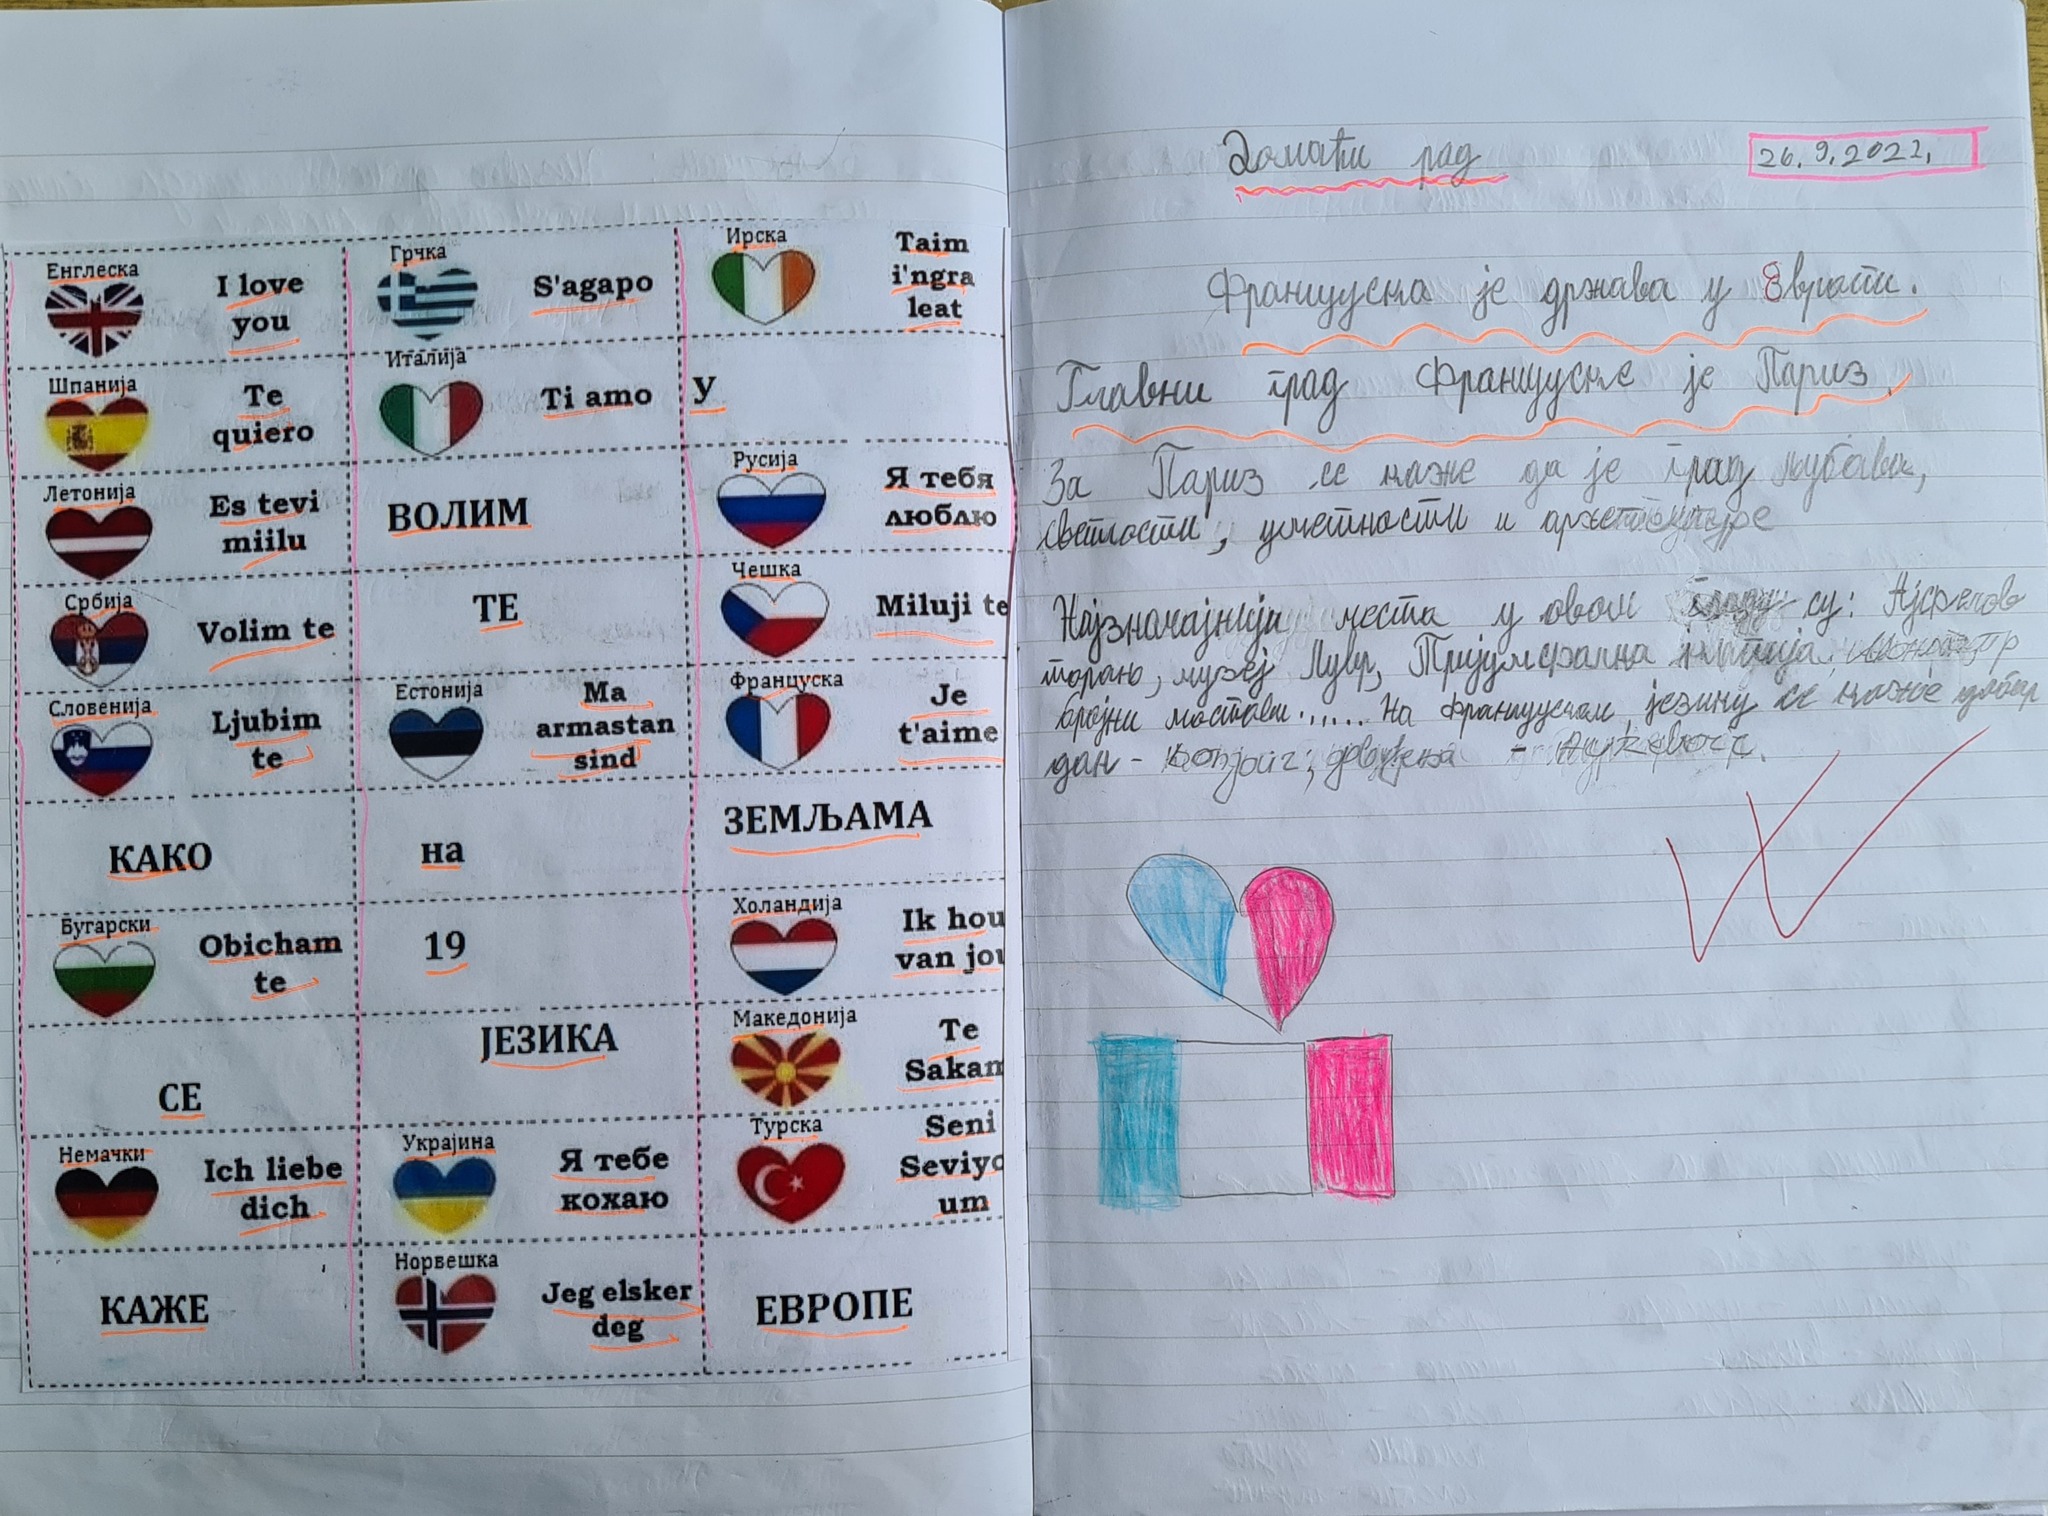 Енглеска
I love
you
Шпанија
Te
quiero
Летонија
Es tevi
miilu
Србија
Volim te
Словенија
Ljubim
te
КАКО
Бугарски
Obicham
te
СЕ
Немачки
Ich liebe
dich
КАЖЕ
Грчка
S'agapo
Италија
Ti amo
ВОЛИМ
ТЕ
Естонија
Ma
armastan
sind
на
19
ЈЕЗИКА
Украјина
Я тебе
кохаю
Норвешка
Jeg elsker
deg
Ирска
Taim
i'ngra
leat
У
Русија
Я тебя
люблю
Чешка
Miluji te
Француска
Je
t'aime
ЗЕМЉАМА
Холандија
Ik hou
van jou
Македонија
Te
Sakam
Турска
Seni
Seviyo
um
ЕВРОПЕ
Домаћи рад
26.9.2022.
Француска је држава у Европи.
Главни град Француске је Париз.
За Париз се каже да је град љубави,
светлости, уметности и архетектуре
места у овом граду су: Ајфелов
торањ, музеј Лувр, Тријумфална капија,
бројни мостови...... На француском језику се каже добар
дан -